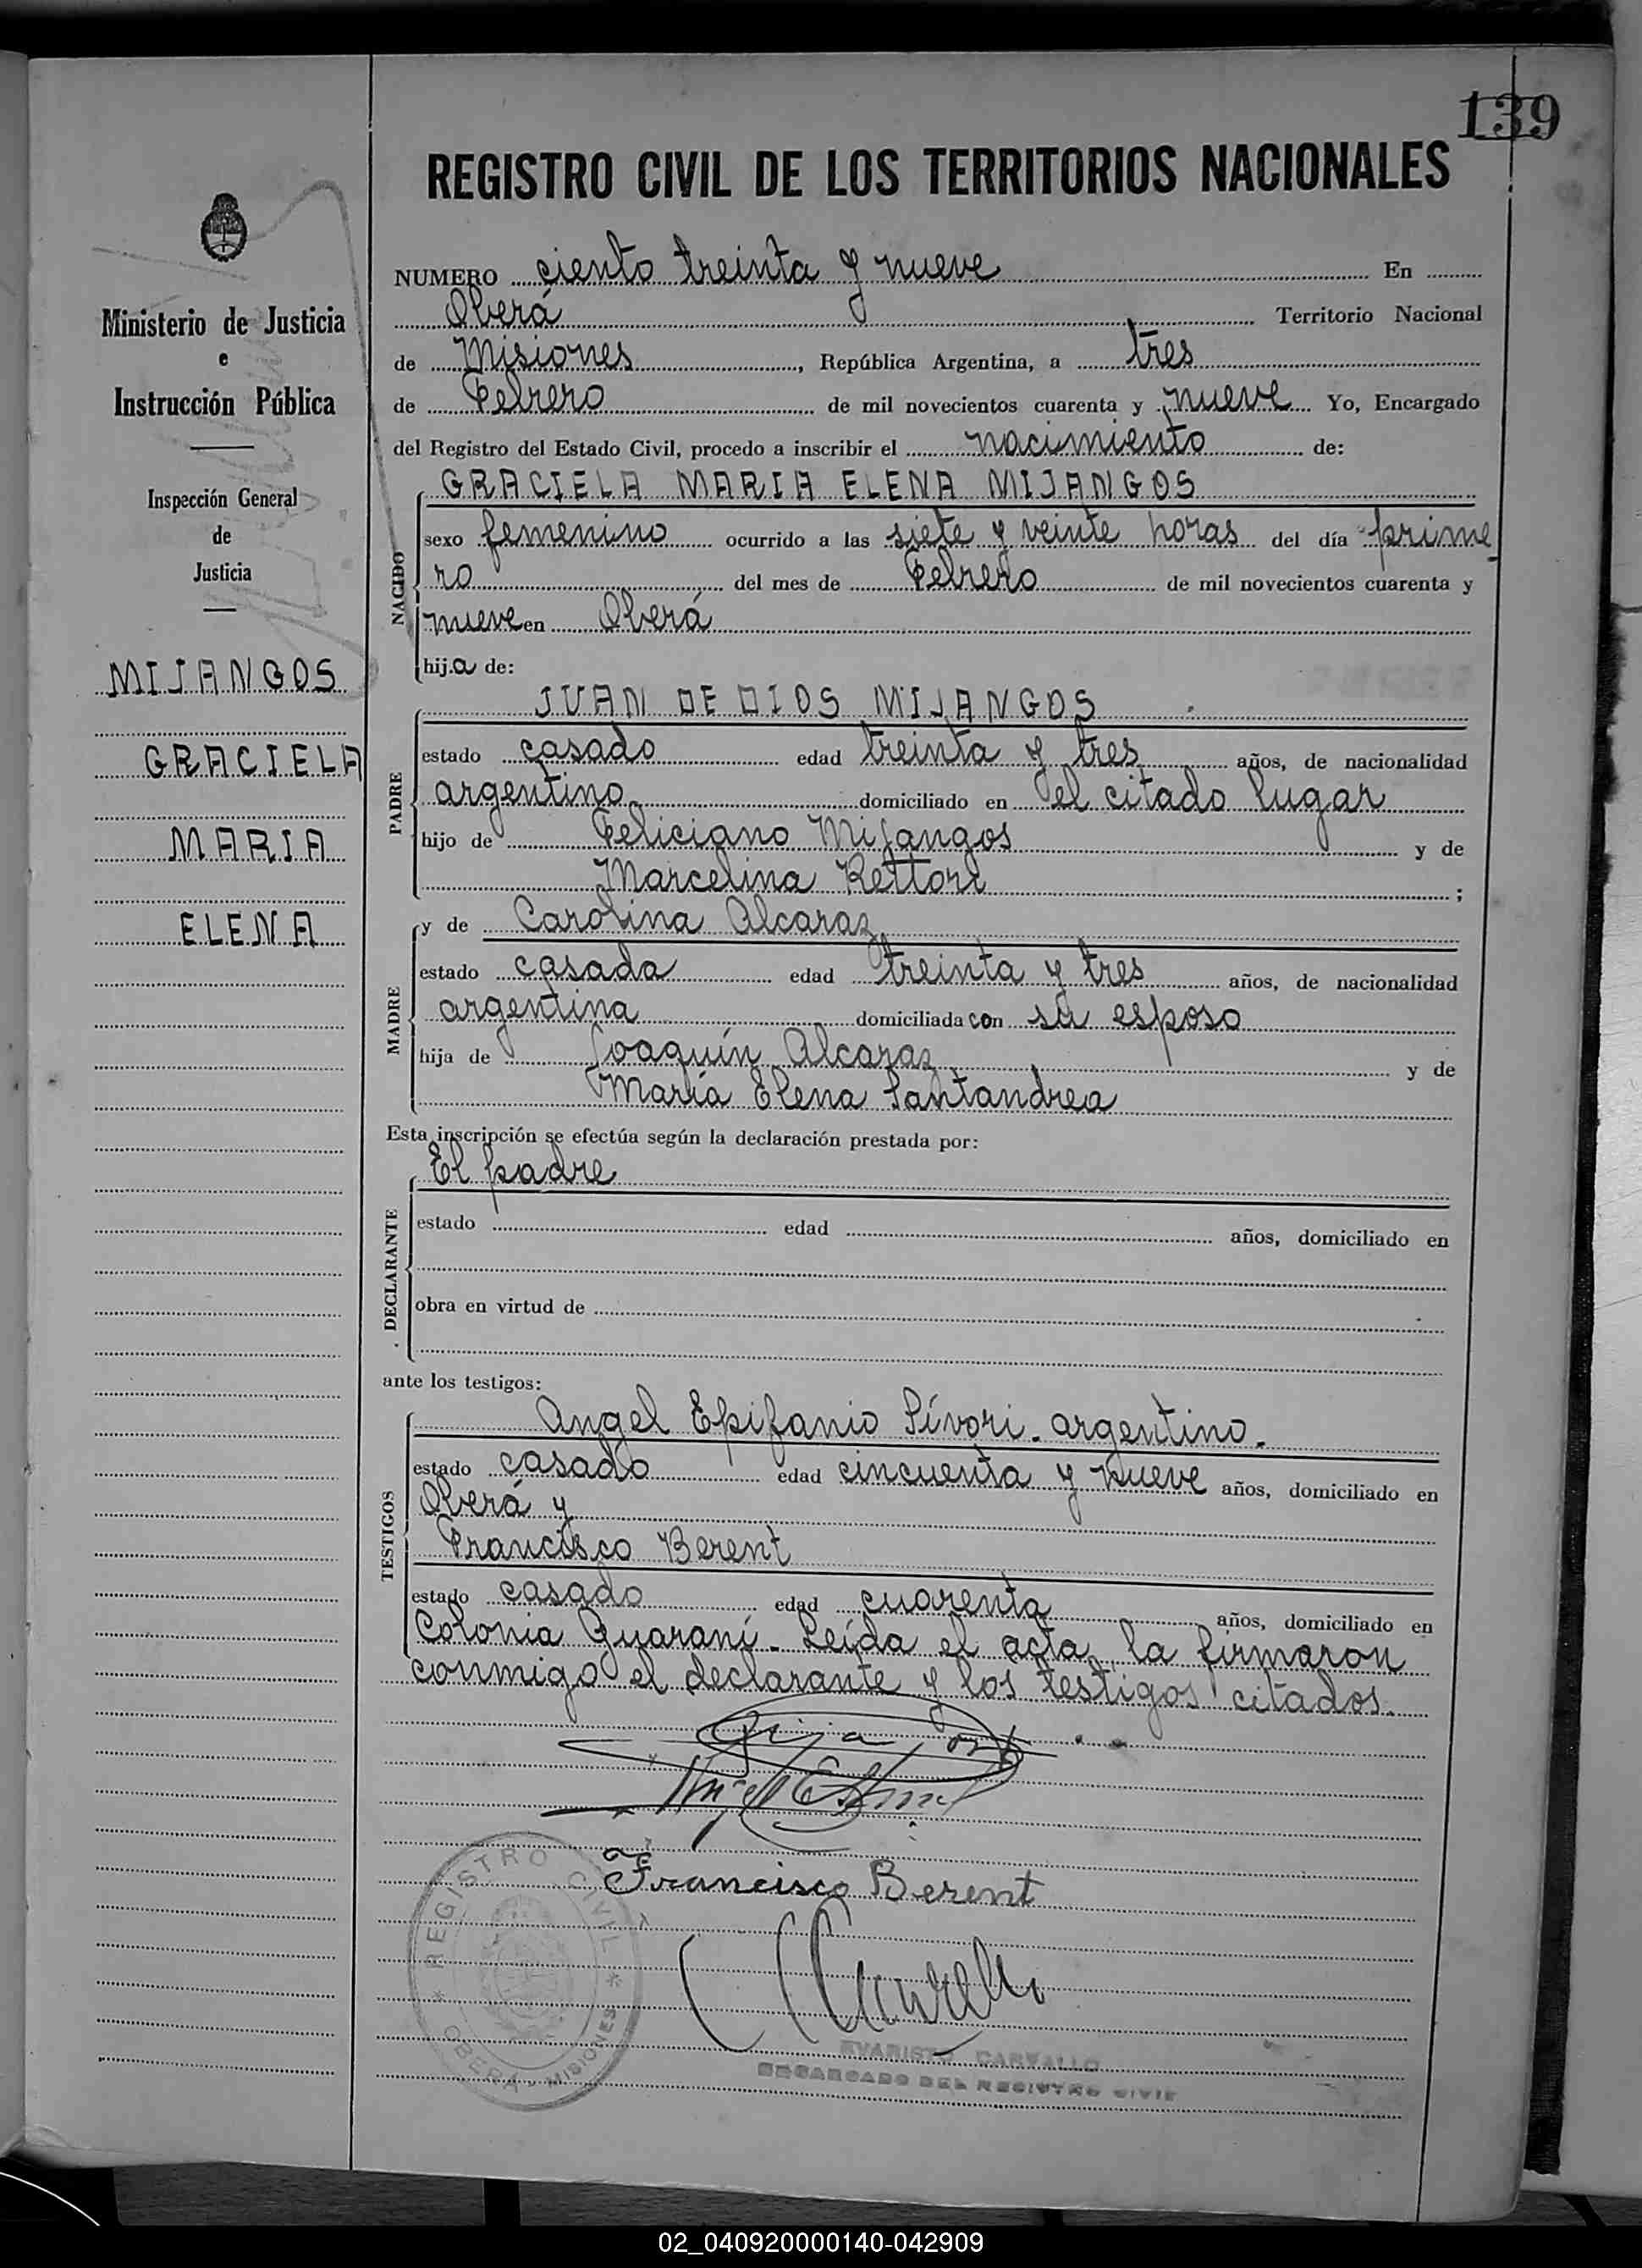 139
REGISTRO CIVIL DE LOS TERRITORIOS NACIONALES
Ministerio de Justicia
e
Instrucción Pública
Inspección General
de
Justicia
MIJANGOS
GRACIELA
MARIA
ELENA
NUMERO ciento treinta y nueve En
Oberá Territorio Nacional
de Misiones, República Argentina, a tres
de Febrero de mil novecientos cuarenta y nueve Yo, Encargado
del Registro del Estado Civil, procedo a inscribir el nacimiento de:
NACIDO
GRACIELA MARIA ELENA MIJANGOS
sexo femenino ocurrido a las siete y veinte horas del día prime
ro del mes de Febrero de mil novecientos cuarenta y
nueve en Oberá
hija de:
PADRE
JUAN DE DIOS MIJANGOS
estado casado edad treinta y tres años, de nacionalidad
argentino domiciliado en el citado lugar
hijo de Feliciano Mijangos y de
Marcelina Rettori ;
MADRE
y de Carolina Alcaraz
estado casada edad treinta y tres años, de nacionalidad
argentina domiciliada con su esposo
hija de Joaquín Alcaraz y de
María Elena Santandrea
Esta inscripción se efectúa según la declaración prestada por:
DECLARANTE
El padre
estado edad años, domiciliado en
obra en virtud de
ante los testigos:
TESTIGOS
Angel Epifanio Sívori. argentino.
estado casado edad cincuenta y nueve años, domiciliado en
Oberá y
Francisco Berent
estado casado edad cuarenta años, domiciliado en
Colonia Guaraní - Leída el acta, la firmaron
conmigo el declarante y los testigos citados.
Francisco Berent
REGISTRO CIVIL
OBERA - MISIONES
EVARISTO CARVALLO
ENCARGADO DEL REGISTRO CIVIL
02_040920000140-042909